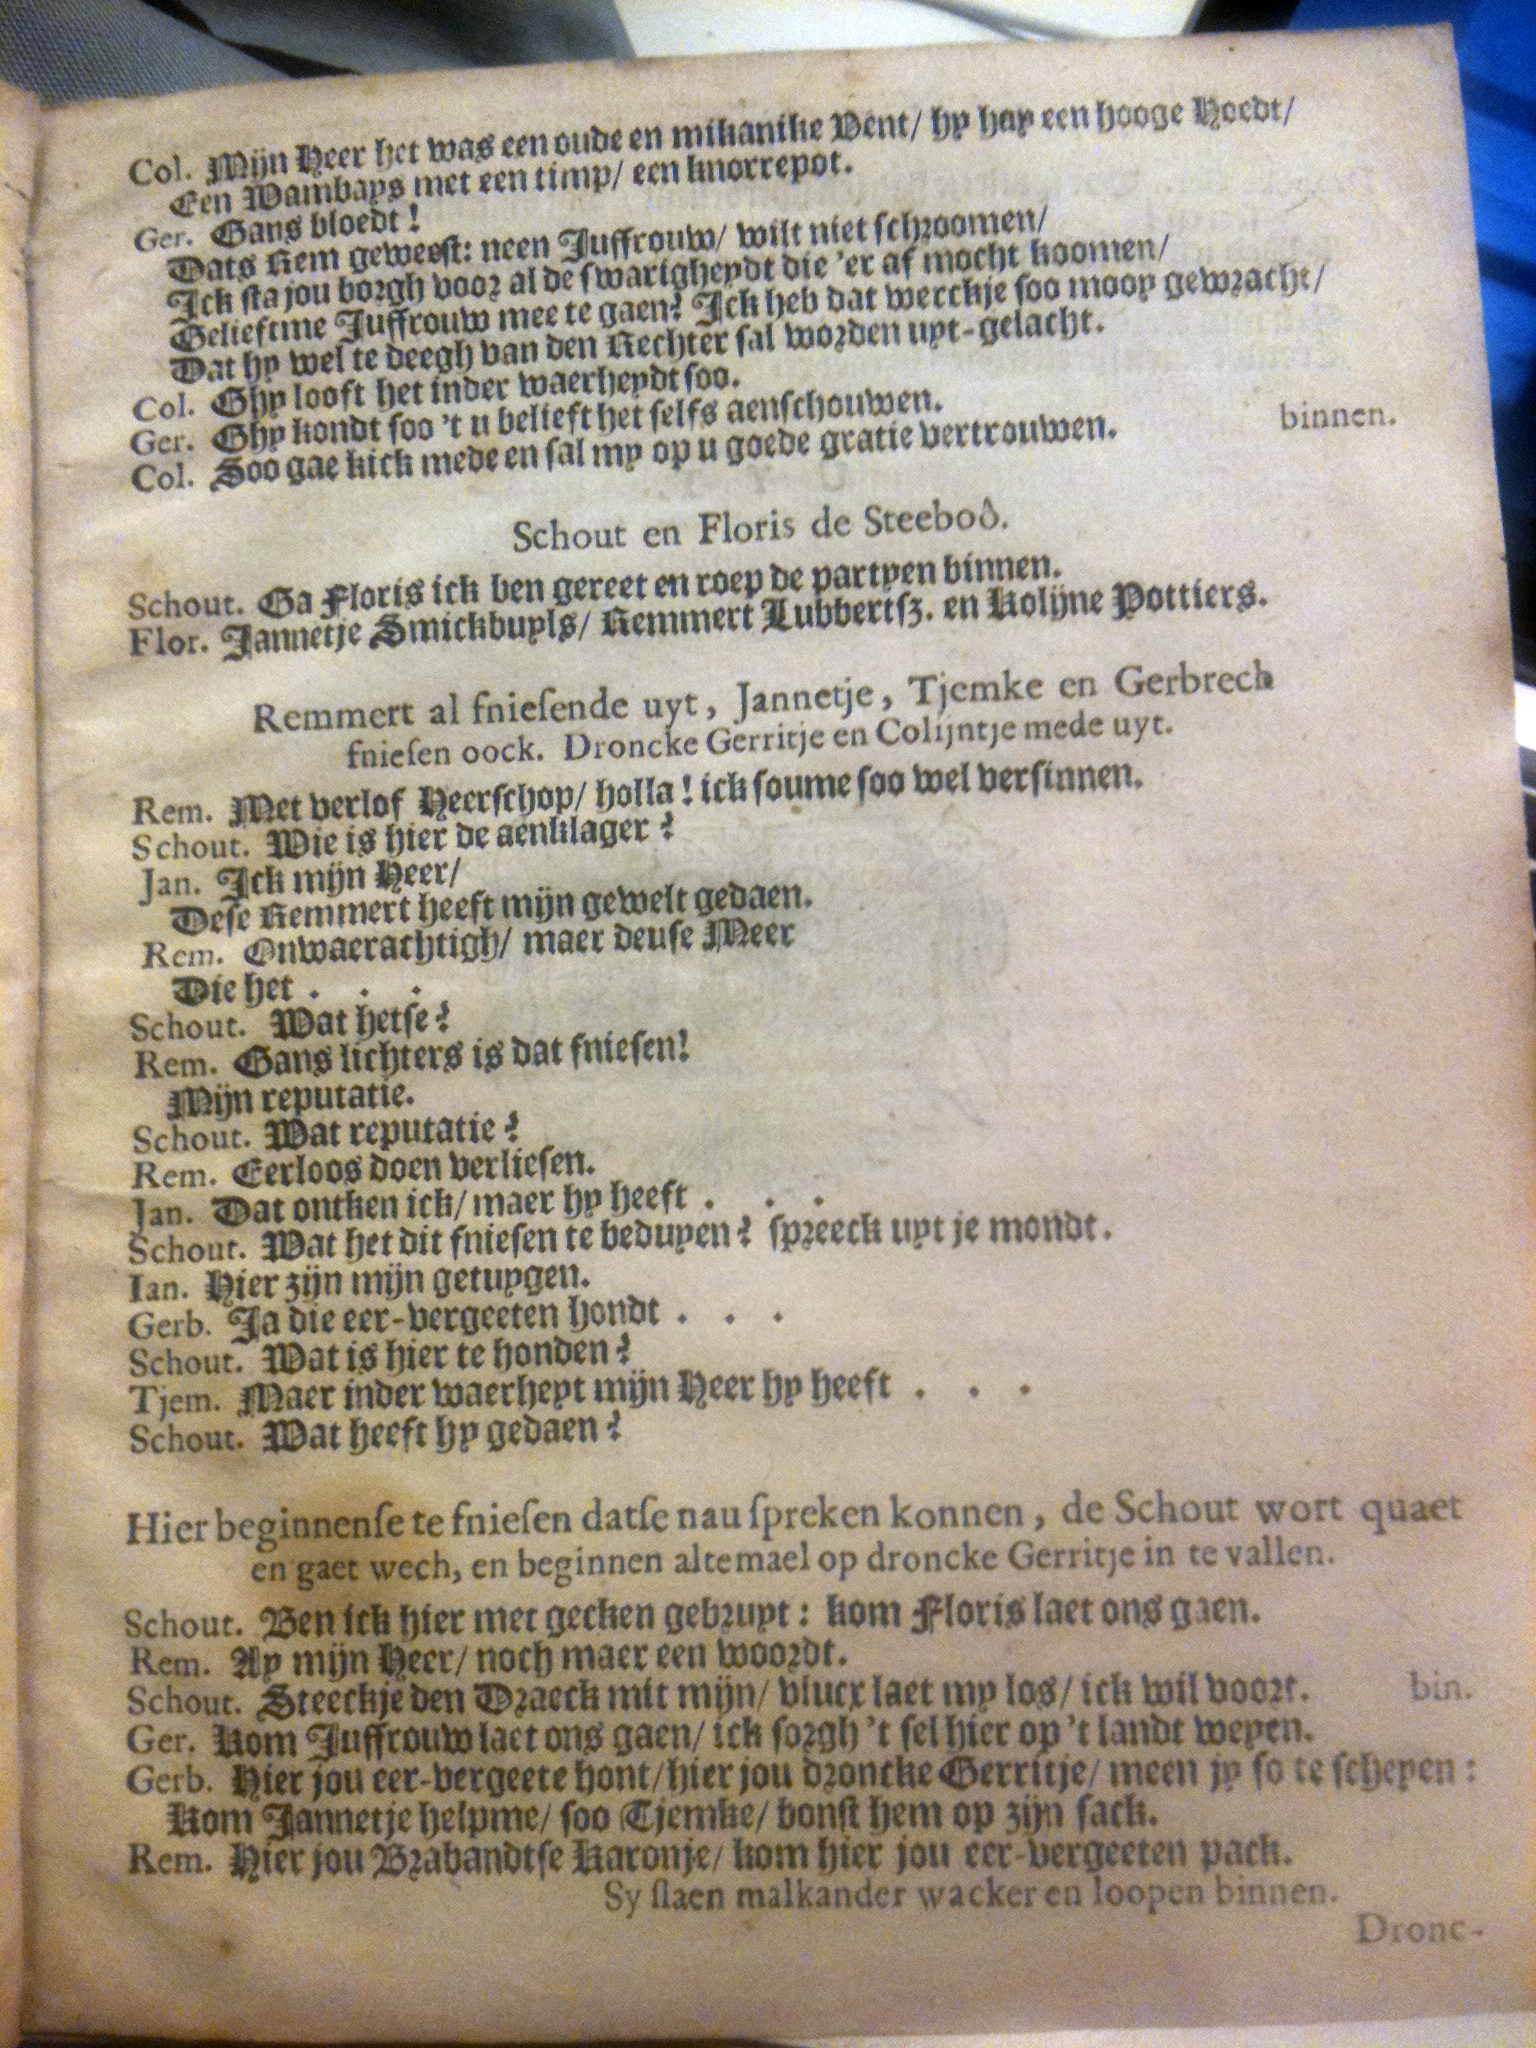 Col. Mijn Heer het was een oude en mikanike Vent/ hy hay een hooge Hoedt/
Een Wambays met een timp/ een knorrepot.
Ger. Gans bloedt!
Dats Rem geweest: neen Juffrouw/ wilt niet schroomen/
Ick sta jou borgh voor al de swarigheydt die 'er af mocht koomen/
Gelieftme Juffrouw mee te gaen? Ick heb dat werckje soo mooy gewracht/
Dat hy wel te deegh van den Rechter sal worden uyt-gelacht.
Col. Ghy looft het inder waerheydt soo.
Ger. Ghy kondt soo 't u belieft het selfs aenschouwen.
Col. Soo gae kick mede en sal my op u goede gratie vertrouwen. binnen.
Schout en Floris de Steeboô.
Schout. Ga Floris ick ben gereet en roep de partyen binnen.
Flor. Jannetje Smickbuyls/ Remmert Lubbertsz. en Kolijne Pottiers.
Remmert al fniesende uyt, Jannetje, Tjemke en Gerbrech
fniesen oock. Droncke Gerritje en Colijntje mede uyt.
Rem. Met verlof Heerschop/ holla! ick soume soo wel versinnen.
Schout. Wie is hier de aenklager?
Jan. Ick mijn Heer/
Dese Remmert heeft mijn gewelt gedaen.
Rem. Onwaerachtigh/ maer deuse Meer
Die het . . .
Schout. Wat hetse?
Rem. Gans lichters is dat fniesen!
Mijn reputatie.
Schout. Wat reputatie?
Rem. Eerloos doen verliesen.
Jan. Dat ontken ick/ maer hy heeft . . .
Schout. Wat het dit fniesen te beduyen? spreeck uyt je mondt.
Ian. Hier zijn mijn getuygen.
Gerb. Ja die eer-vergeeten hondt . . .
Schout. Wat is hier te honden?
Tjem. Maer inder waerheyt mijn Heer hy heeft . . .
Schout. Wat heeft hy gedaen?
Hier beginnense te fniesen datse nau spreken konnen, de Schout wort quaet
en gaet wech, en beginnen altemael op droncke Gerritje in te vallen.
Schout. Ben ick hier met gecken gebruyt: kom Floris laet ons gaen.
Rem. Ay mijn Heer/ noch maer een woordt.
Schout. Steeckje den Draeck mit mijn/ vlucx laet my los/ ick wil voort. bin.
Ger. Kom Juffrouw laet ons gaen/ ick sorgh 't sel hier op 't landt weyen.
Gerb. Hier jou eer-vergeete hont/ hier jou droncke Gerritje/ meen jy so te scheyen:
Kom Jannetje helpme/ soo Tjemke/ bonst hem op zijn sack.
Rem. Hier jou Brabandtse Karonje/ kom hier jou eer-vergeeten pack.
Sy slaen malkander wacker en loopen binnen.
Dronc-